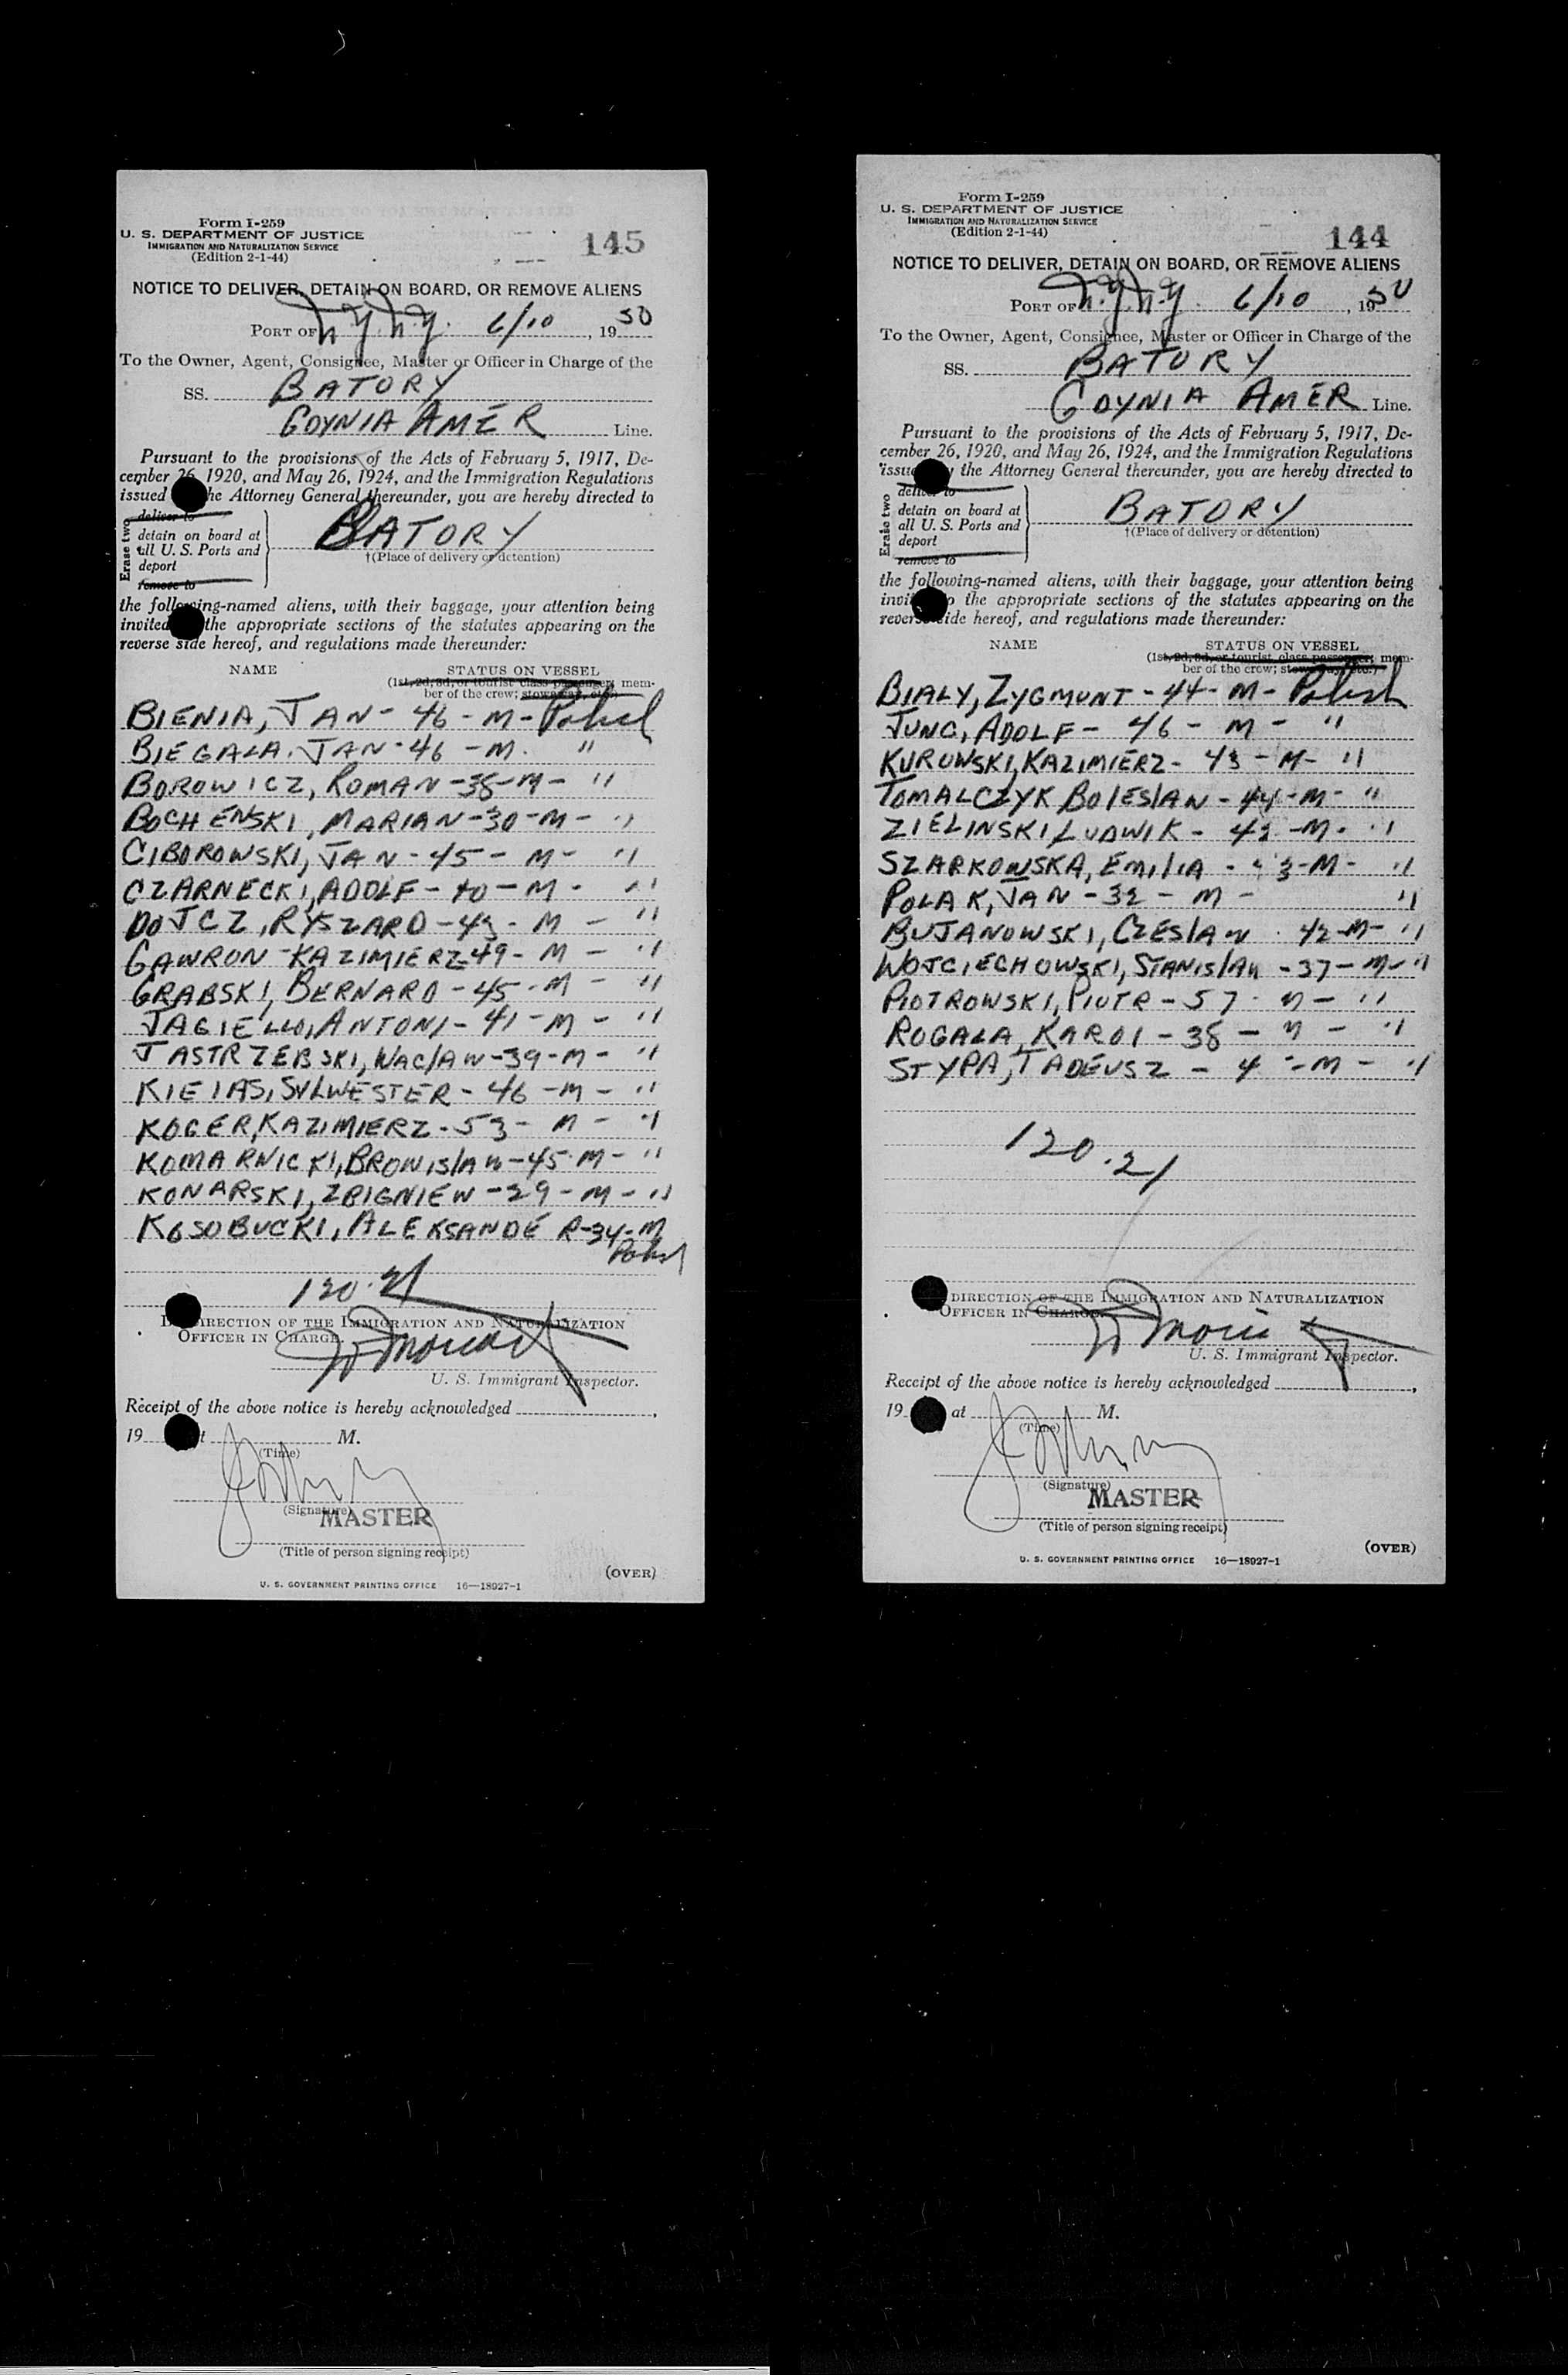 Form I-259
U. S. DEPARTMENT OF JUSTICE
IMMIGRATION AND NATURALIZATION SERVICE
(Edition 2-1-44)
145
NOTICE TO DELIVER, DETAIN ON BOARD, OR REMOVE ALIENS
PORT OF N.Y.N.Y. 6/10, 1950
To the Owner, Agent, Consignee, Master or Officer in Charge of the
SS. BATORY
GDYNIA AMER Line.
Pursuant to the provisions of the Acts of February 5, 1917, De-
cember 26, 1920, and May 26, 1924, and the Immigration Regulations
issued the Attorney General thereunder, you are hereby directed to
Erase two
deliver to
detain on board at
all U. S. Ports and
deport
remove to
BATORY
†(Place of delivery or detention)
the following-named aliens, with their baggage, your attention being
invited the appropriate sections of the statutes appearing on the
reverse side hereof, and regulations made thereunder:
NAME STATUS ON VESSEL
(1st, 2d, 3d, or tourist class passenger; mem-
ber of the crew; stowaway, etc.)
BIENIA, JAN - 46 - M - Polish
BIEGALA. JAN - 46 - M. "
BOROWICZ, ROMAN - 38 - M - "
BOCHENSKI, MARIAN - 30 - M - "
CIBOROWSKI, JAN - 45 - M - "
CZARNECKI, ADOLF - 40 - M - "
DOJCZ, RYSZARD - 43 - M - "
GAWRON - KAZIMIERZ - 49 - M - "
GRABSKI, BERNARD - 45 - M - "
JAGIELLO, ANTONI - 41 - M - "
JASTRZEBSKI, WACLAW - 39 - M - "
KIELAS, SYLWESTER - 46 - M - "
KOGER, KAZIMIERZ - 53 - M - "
KOMARNICKI, BRONISLAW - 45 - M - "
KONARSKI, ZBIGNIEW - 29 - M - "
KOSOBUCKI, ALEKSANDER - 34 - M
Polish
120.21
DIRECTION OF THE IMMIGRATION AND NATURALIZATION
OFFICER IN CHARGE.
U. S. Immigrant Inspector.
Receipt of the above notice is hereby acknowledged ,
19 t M.
(Time)
(Signature)
MASTER
(Title of person signing receipt)
(OVER)
U. S. GOVERNMENT PRINTING OFFICE 16—18927-1
Form I-259
U. S. DEPARTMENT OF JUSTICE
IMMIGRATION AND NATURALIZATION SERVICE
(Edition 2-1-44)
144
NOTICE TO DELIVER, DETAIN ON BOARD, OR REMOVE ALIENS
PORT OF N.Y.N.Y. 6/10, 1950
To the Owner, Agent, Consignee, Master or Officer in Charge of the
SS. BATORY
GDYNIA AMER Line.
Pursuant to the provisions of the Acts of February 5, 1917, De-
cember 26, 1920, and May 26, 1924, and the Immigration Regulations
issued the Attorney General thereunder, you are hereby directed to
Erase two
deliver to
detain on board at
all U. S. Ports and
deport
remove to
BATORY
†(Place of delivery or detention)
the following-named aliens, with their baggage, your attention being
invited to the appropriate sections of the statutes appearing on the
reverse side hereof, and regulations made thereunder:
NAME STATUS ON VESSEL
(1st, 2d, 3d, or tourist class passenger; mem-
ber of the crew; stowaway, etc.)
BIALY, ZYGMUNT - 44 - M - Polish
JUNG, ADOLF - 46 - M - "
KUROWSKI, KAZIMIERZ - 43 - M - "
TOMALCZYK BOLESLAW - 44 - M - "
ZIELINSKI, LUDWIK - M - "
SZARKOWSKA, EMILIA - M - "
POLAK, JAN - 32 - M - "
BUJANOWSKI, CZESLAW - 42 - M - "
WOJCIECHOWSKI, STANISLAW - 37 - M - "
PIOTROWSKI, PIOTR - 57 - M - "
ROGALA, KAROL - 38 - M - "
STYPA, TADEUSZ - M - "
120.21
DIRECTION OF THE IMMIGRATION AND NATURALIZATION
OFFICER IN CHARGE.
U. S. Immigrant Inspector.
Receipt of the above notice is hereby acknowledged ,
19 at M.
(Time)
(Signature)
MASTER
(Title of person signing receipt)
(OVER)
U. S. GOVERNMENT PRINTING OFFICE 16—18927-1